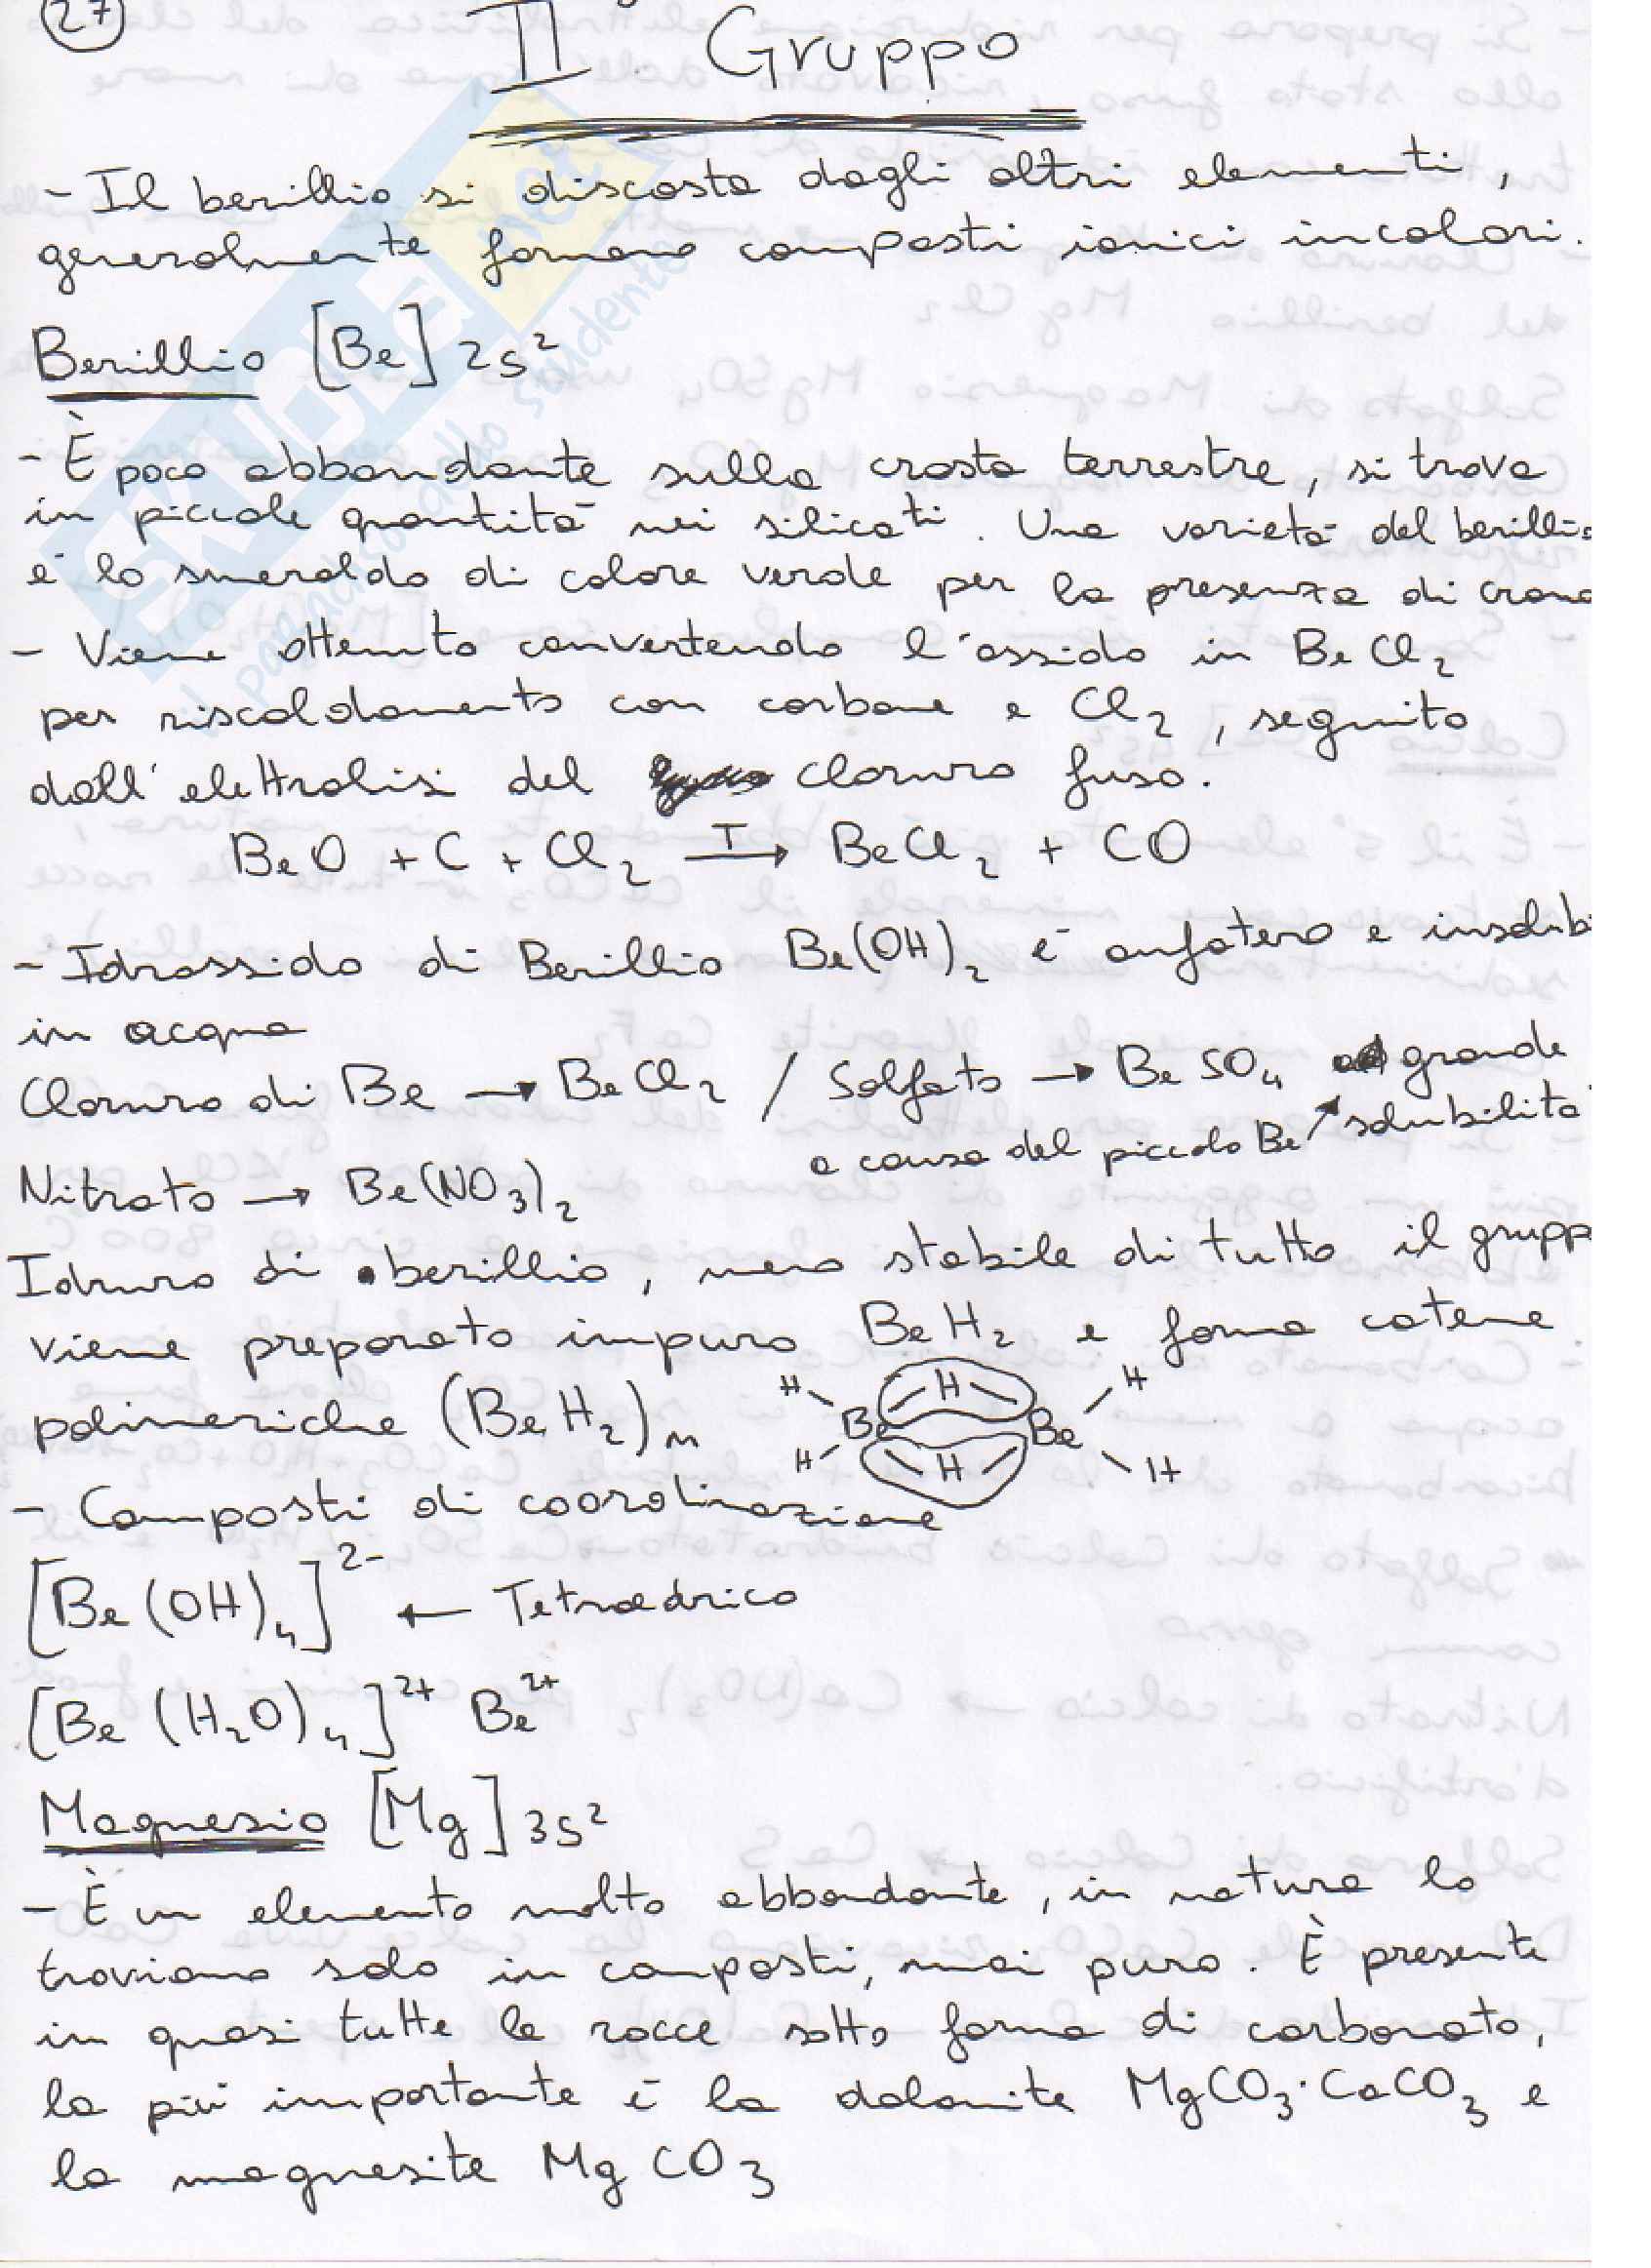 27
II Gruppo
- Il berillio si discosta dagli altri elementi,
generalmente formano composti ionici incolori.
Berillio [Be] 2s²
- È poco abbondante sulla crosta terrestre, si trova
in piccole quantità nei silicati. Una varietà del berillio
è lo smeraldo di colore verde per la presenza di cromo
- Viene ottenuto convertendo l'ossido in BeCl₂
per riscaldamento con carbone e Cl₂, seguito
dall'elettrolisi del cloruro fuso.
BeO + C + Cl₂ —T→ BeCl₂ + CO
- Idrossido di Berillio Be(OH)₂ è anfotero e insolub
in acqua
Cloruro di Be → BeCl₂ / Solfato → BeSO₄ grande
a causa del piccolo Be ↗ solubilità
Nitrato → Be(NO₃)₂
Idruro di berillio, meno stabile di tutto il grupp
viene preparato impuro BeH₂ e forma catene
polimeriche (BeH₂)n
H H H
Be Be
H H H
- Composti di coordinazione
[Be(OH)₄]²⁻ ← Tetraedrico
[Be(H₂O)₄]²⁺ Be²⁺
Magnesio [Mg] 3s²
- È un elemento molto abbondante, in natura lo
troviamo solo in composti, mai puro. È presente
in quasi tutte le rocce sotto forma di carbonato,
la più importante è la dolomite MgCO₃·CaCO₃ e
la magnesite MgCO₃
SKUOLA.net
il paradiso dello studente